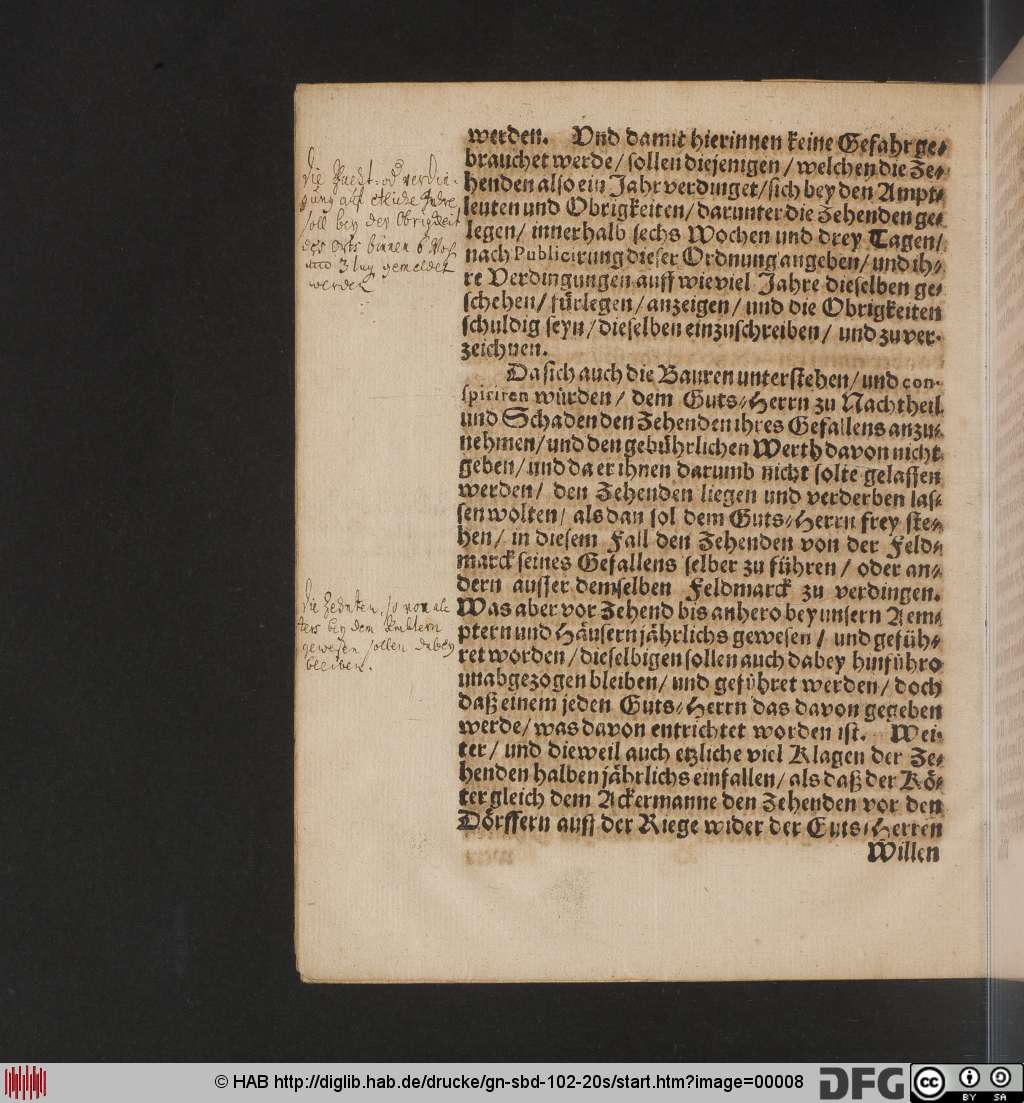 werden. Vnd damit hierinnen keine Gefahr ge-
brauchet werde/ sollen diejenigen/ welchen die Ze-
henden also ein Jahr verdinget/ sich bey den Ampt-
leuten und Obrigkeiten/ darunter die Zehenden ge-
legen/ innerhalb sechs Wochen und drey Tagen/
nach Publicirung dieser Ordnung angeben/ und ih-
re Verdingungen auff wie viel Jahre dieselben ge-
schehen/ fürlegen/ anzeigen/ und die Obrigkeiten
schuldig seyn/ dieselben einzuschreiben/ und zu ver-
zeichnen.
Da sich auch die Bauren unterstehen/ und con-
spiriren würden/ dem Guts-Herrn zu Nachtheil
und Schaden den Zehenden ihres Gefallens anzu-
nehmen/ und den gebührlichen Werth davon nicht
geben/ und da er ihnen darumb nicht solte gelassen
werden/ den Zehenden liegen und verderben las-
sen wolten/ alsdan sol dem Guts-Herrn frey ste-
hen/ in diesem Fall den Zehenden von der Feld-
marck seines Gefallens selber zu führen/ oder an-
dern ausser demselben Feldmarck zu verdingen.
Was aber vor Zehend bis anhero bey unsern Aem-
ptern und Häusern jährlichs gewesen/ und gefüh-
ret worden/ dieselbigen sollen auch dabey hinführo
unabgezogen bleiben/ und geführet werden/ doch
daß einem jeden Guts-Herrn das davon gegeben
werde/ was davon entrichtet worden ist. Wei-
ter/ und dieweil auch etzliche viel Klagen der Ze-
henden halben jährlichs einfallen/ als daß der Kö-
ter gleich dem Ackermanne den Zehenden vor den
Dörffern auff der Riege wider der Guts-Herren
Willen
die Pacht od verdin-
gung auf etliche Jahre
soll bey der Obrigkeit
des orts binnen 6 Woch
und 3 tag gemeldet
werden
die Zehnten, so von al-
ters bey dem Embtern
gewesen sollen dabey
bleiben.
© HAB http://diglib.hab.de/drucke/gn-sbd-102-20s/start.htm?image=00008
DFG
cc BY SA